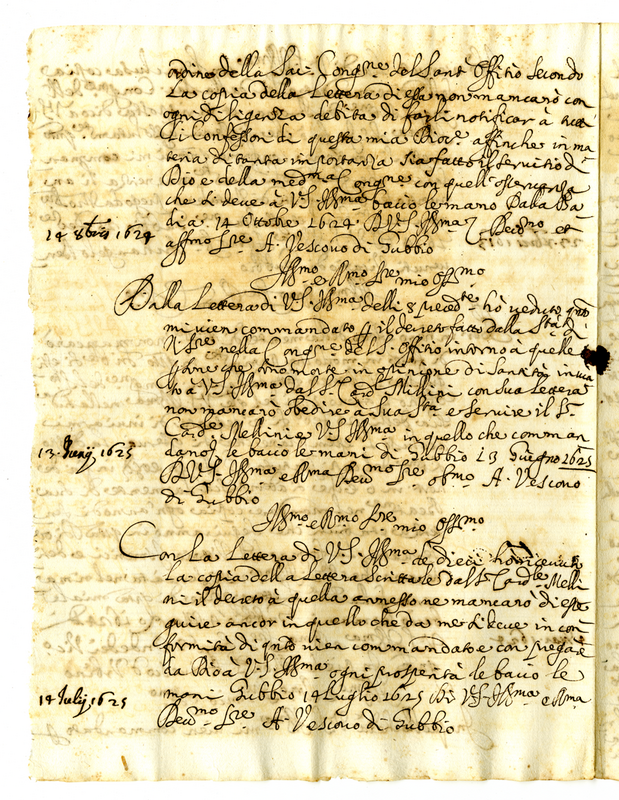 ordine della Sac. Congne. del Sant Offitio secondo
La copia della Lettera di essa non mancarò con
ogni diligenza debita di farli notificar à tutti
li Confessori di questa mia Dioce. affinche in ma
teria di tanta importanza sia fatto il servitio di
Dio e della medma. Congne. con quell'osservanza
che si deve à V.S. Illma. bacio le mano Dalla Ba
dia 14 Ottobre 1624. D V.S. Illma. Revmo. et
14 8bris 1624
affmo. Sre. A. Vescovo di Gubbio
Illmo. e Rmo. Sre. mio Ossmo.
Dalla Lettera di V.S. Illma. delli 8 preced.te hò veduto qnto
mi vien commandato il decreto fatto dalla Sta. di
N. Sre. nella Congne. del S. Offitio intorno à quelle
che sono morte in opinione di Santità
to à V.S. Illma. dal S. Card. Millini con sua Lettera
non mancarò obedire à Sua Sta. e servire il S.
Carde. Mellini e V.S. Illma. in quello che comman
13. Junij 1625
dano, le bacio le mani di Gubbio 13 Giugno 1625
D V.S. Illma. e Rma. Sre. A. Vescovo
di Gubbio
Illmo. e Rmo. Sre. mio Ossmo.
Con La Lettera di V.S. Illma. de dieci hò ricevuto
La copia della Lettera dal S. Carde. Melli
ni il decreto à quella annesso ne mancarò di ese
quire ancor in quello che da me si deve in con
formità di qnto vien commandato e con pregare
da Dio à V.S. Illma. ogni prosperità le bacio le
14 Julij 1625
mani Gubbio 14 Luglio 1625 V.S. Illma. e Rma.
Sre. A. Vescovo di Gubbio